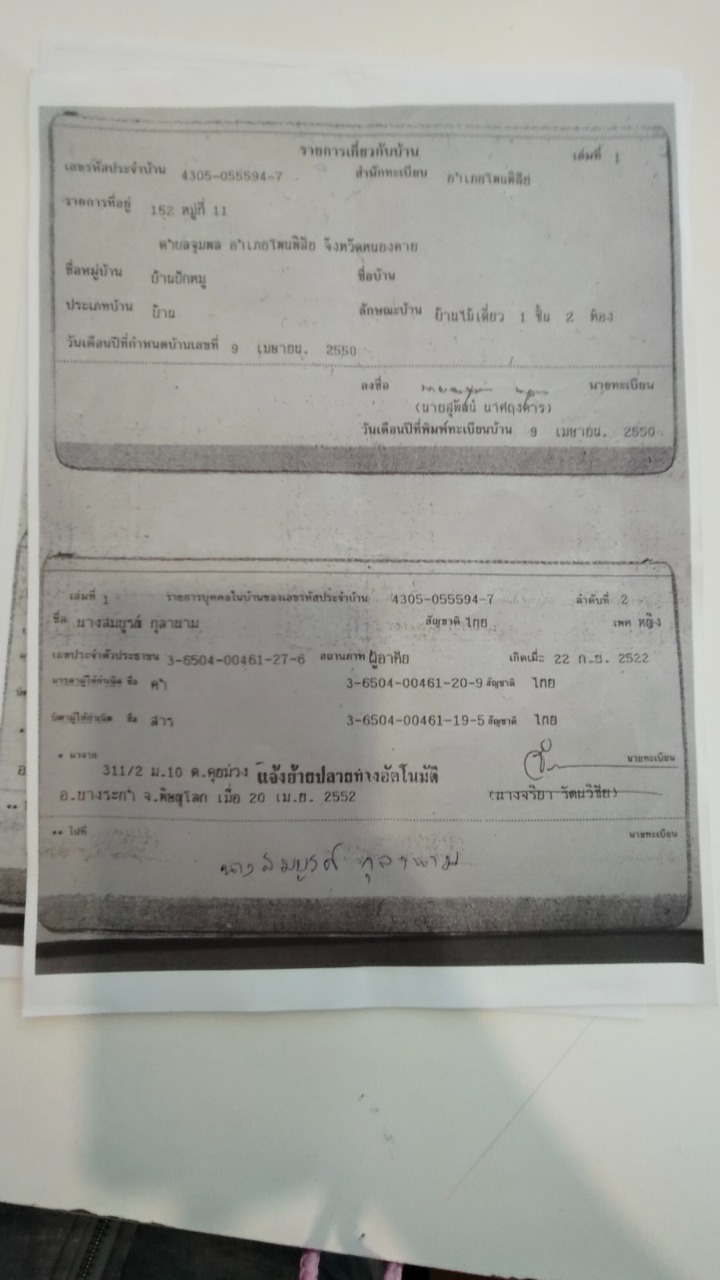 รายการเกี่ยวกับบ้าน เล่มที่ 1
เลขรหัสประจำบ้าน 4305-055594-7 สำนักทะเบียน อำเภอโพนพิสัย
รายการที่อยู่ 152 หมู่ที่ 11
ตำบลจุมพล อำเภอโพนพิสัย จังหวัดหนองคาย
ชื่อหมู่บ้าน บ้านปักหมู ชื่อบ้าน
ประเภทบ้าน บ้าน ลักษณะบ้าน บ้านไม้เดี่ยว 1 ชั้น 2 ห้อง
วันเดือนปีที่กำหนดบ้านเลขที่ 9 เมษายน. 2550
ลงชื่อ นายทะเบียน
วันเดือนปีที่พิมพ์ทะเบียนบ้าน 9 เมษายน. 2550
เล่มที่ 1 รายการบุคคลในบ้านของเลขรหัสประจำบ้าน 4305-055594-7 ลำดับที่ 2
ชื่อ นางสมบูรณ์ กุลานาม สัญชาติ ไทย เพศ หญิง
เลขประจำตัวประชาชน 3-6504-00461-27-6 สถานภาพ ผู้อาศัย เกิดเมื่อ 22 ก.ย. 2522
มารดาผู้ให้กำเนิด ชื่อ คำ 3-6504-00461-20-9 สัญชาติ ไทย
บิดาผู้ให้กำเนิด ชื่อ สาร 3-6504-00461-19-5 สัญชาติ ไทย
* มาจาก นายทะเบียน
311/2 ม.10 ต.คุยม่วง แจ้งย้ายปลายทางอัตโนมัติ
อ.บางระกำ จ.พิษณุโลก เมื่อ 20 เม.ย. 2552 (นางจริยา รัตนวิชัย)
** ไปที่ นายทะเบียน
นางสมบูรณ์ กุลานาม